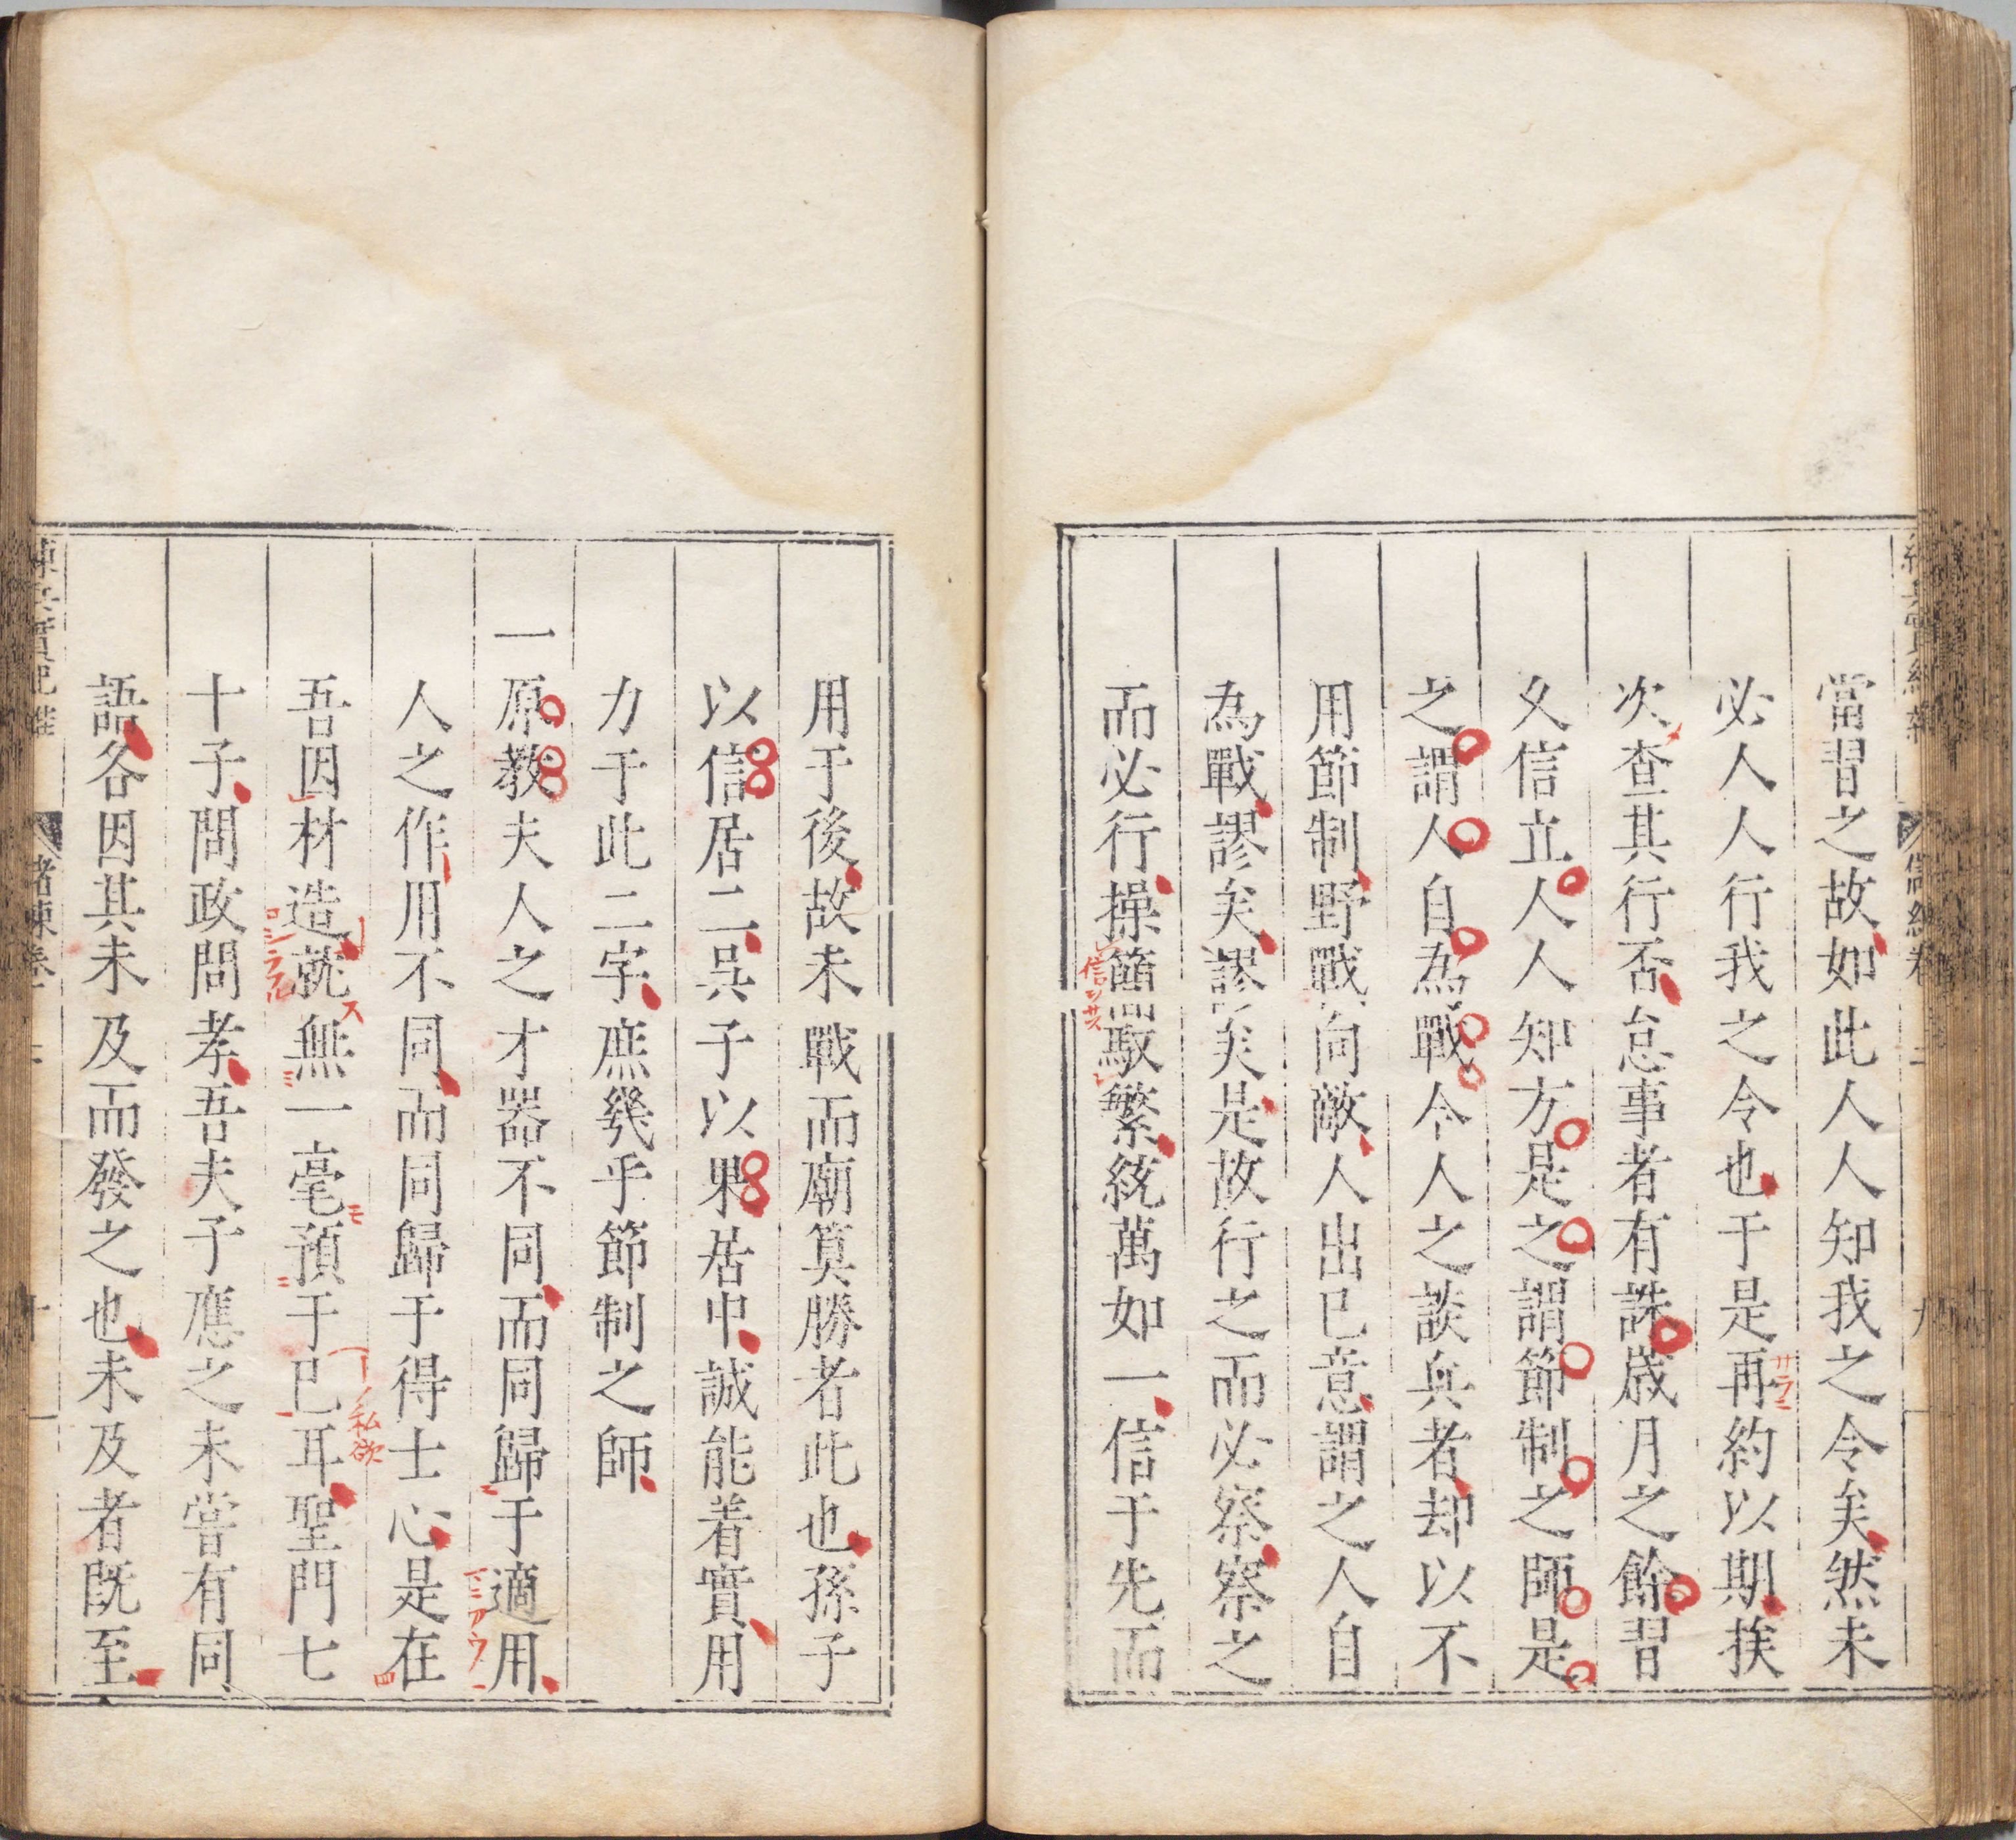 當習之故如此人人知我之令矣然未
必人人行我之令也于是再約以期挨
次查其行否怠事者有誅歲月之餘習
久信立人人知方是之謂節制之師是
之謂人自為戰今人之談兵者却以不
用節制野戰向敵人出已意謂之人自
為戰謬矣謬矣是故行之而必察察之
而必行操簡馭繁統萬如一信于先而
用于後故未戰而廟筭勝者此也孫子
以信居二吳子以果居中誠能着實用
力于此二字庶幾乎節制之師
一原教夫人之才器不同而同歸于適用
人之作用不同而同歸于得士心是在
吾因材造就無一毫預于已耳聖門七
十子問政問孝吾夫子應之未嘗有同
語各因其未及而發之也未及者既至
サラニ
信ヲサス
ニアウ
私欲